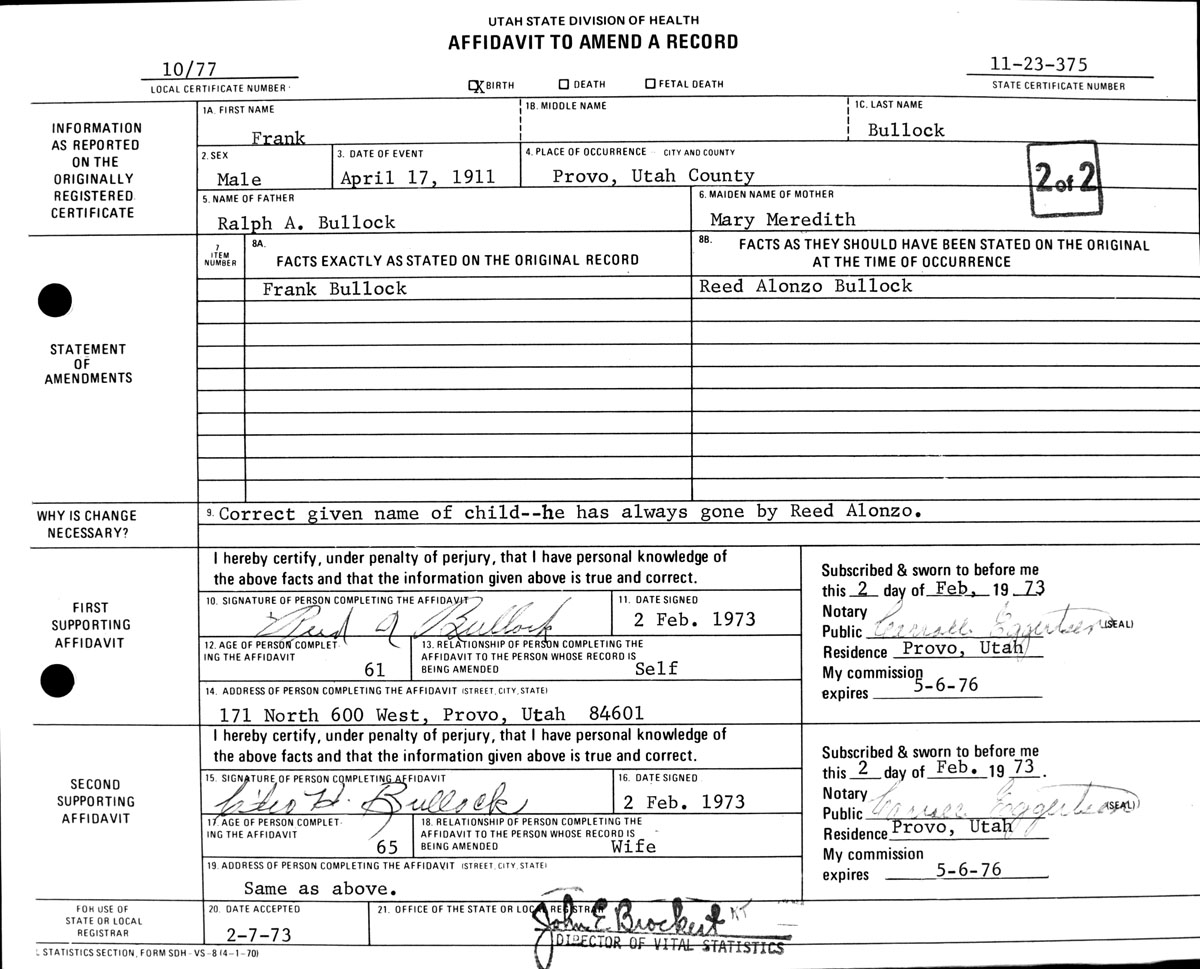 UTAH STATE DIVISION OF HEALTH
AFFIDAVIT TO AMEND A RECORD
10/77
LOCAL CERTIFICATE NUMBER
X BIRTH DEATH FETAL DEATH
11-23-375
STATE CERTIFICATE NUMBER
INFORMATION
AS REPORTED
ON THE
ORIGINALLY
REGISTERED
CERTIFICATE
1A. FIRST NAME
Frank
1B. MIDDLE NAME
1C. LAST NAME
Bullock
2. SEX
Male
3. DATE OF EVENT
April 17, 1911
4. PLACE OF OCCURRENCE - CITY AND COUNTY
Provo, Utah County
2 of 2
5. NAME OF FATHER
Ralph A. Bullock
6. MAIDEN NAME OF MOTHER
Mary Meredith
STATEMENT
OF
AMENDMENTS
7
ITEM
NUMBER
8A.
FACTS EXACTLY AS STATED ON THE ORIGINAL RECORD
8B. FACTS AS THEY SHOULD HAVE BEEN STATED ON THE ORIGINAL
AT THE TIME OF OCCURRENCE
Frank Bullock
Reed Alonzo Bullock
WHY IS CHANGE
NECESSARY?
9. Correct given name of child--he has always gone by Reed Alonzo.
FIRST
SUPPORTING
AFFIDAVIT
I hereby certify, under penalty of perjury, that I have personal knowledge of
the above facts and that the information given above is true and correct.
10. SIGNATURE OF PERSON COMPLETING THE AFFIDAVIT
Reed A Bullock
11. DATE SIGNED
2 Feb. 1973
12. AGE OF PERSON COMPLET-
ING THE AFFIDAVIT
61
13. RELATIONSHIP OF PERSON COMPLETING THE
AFFIDAVIT TO THE PERSON WHOSE RECORD IS
BEING AMENDED
Self
14. ADDRESS OF PERSON COMPLETING THE AFFIDAVIT (STREET, CITY, STATE)
171 North 600 West, Provo, Utah 84601
Subscribed & sworn to before me
this 2 day of Feb, 19 73
Notary
Public Carroll Eggertsen (SEAL)
Residence Provo, Utah
My commission
expires 5-6-76
SECOND
SUPPORTING
AFFIDAVIT
I hereby certify, under penalty of perjury, that I have personal knowledge of
the above facts and that the information given above is true and correct.
15. SIGNATURE OF PERSON COMPLETING AFFIDAVIT
H. Bullock
16. DATE SIGNED
2 Feb. 1973
17. AGE OF PERSON COMPLET-
ING THE AFFIDAVIT
65
18. RELATIONSHIP OF PERSON COMPLETING THE
AFFIDAVIT TO THE PERSON WHOSE RECORD IS
BEING AMENDED
Wife
19. ADDRESS OF PERSON COMPLETING THE AFFIDAVIT (STREET, CITY, STATE)
Same as above.
Subscribed & sworn to before me
this 2 day of Feb. 19 73.
Notary
Public Carroll Eggertsen (SEAL)
Residence Provo, Utah
My commission
expires 5-6-76
FOR USE OF
STATE OR LOCAL
REGISTRAR
20. DATE ACCEPTED
2-7-73
21. OFFICE OF THE STATE OR LOCAL REGISTRAR
John E. Brockert
DIRECTOR OF VITAL STATISTICS
STATISTICS SECTION, FORM SDH-VS-8 (4-1-70)